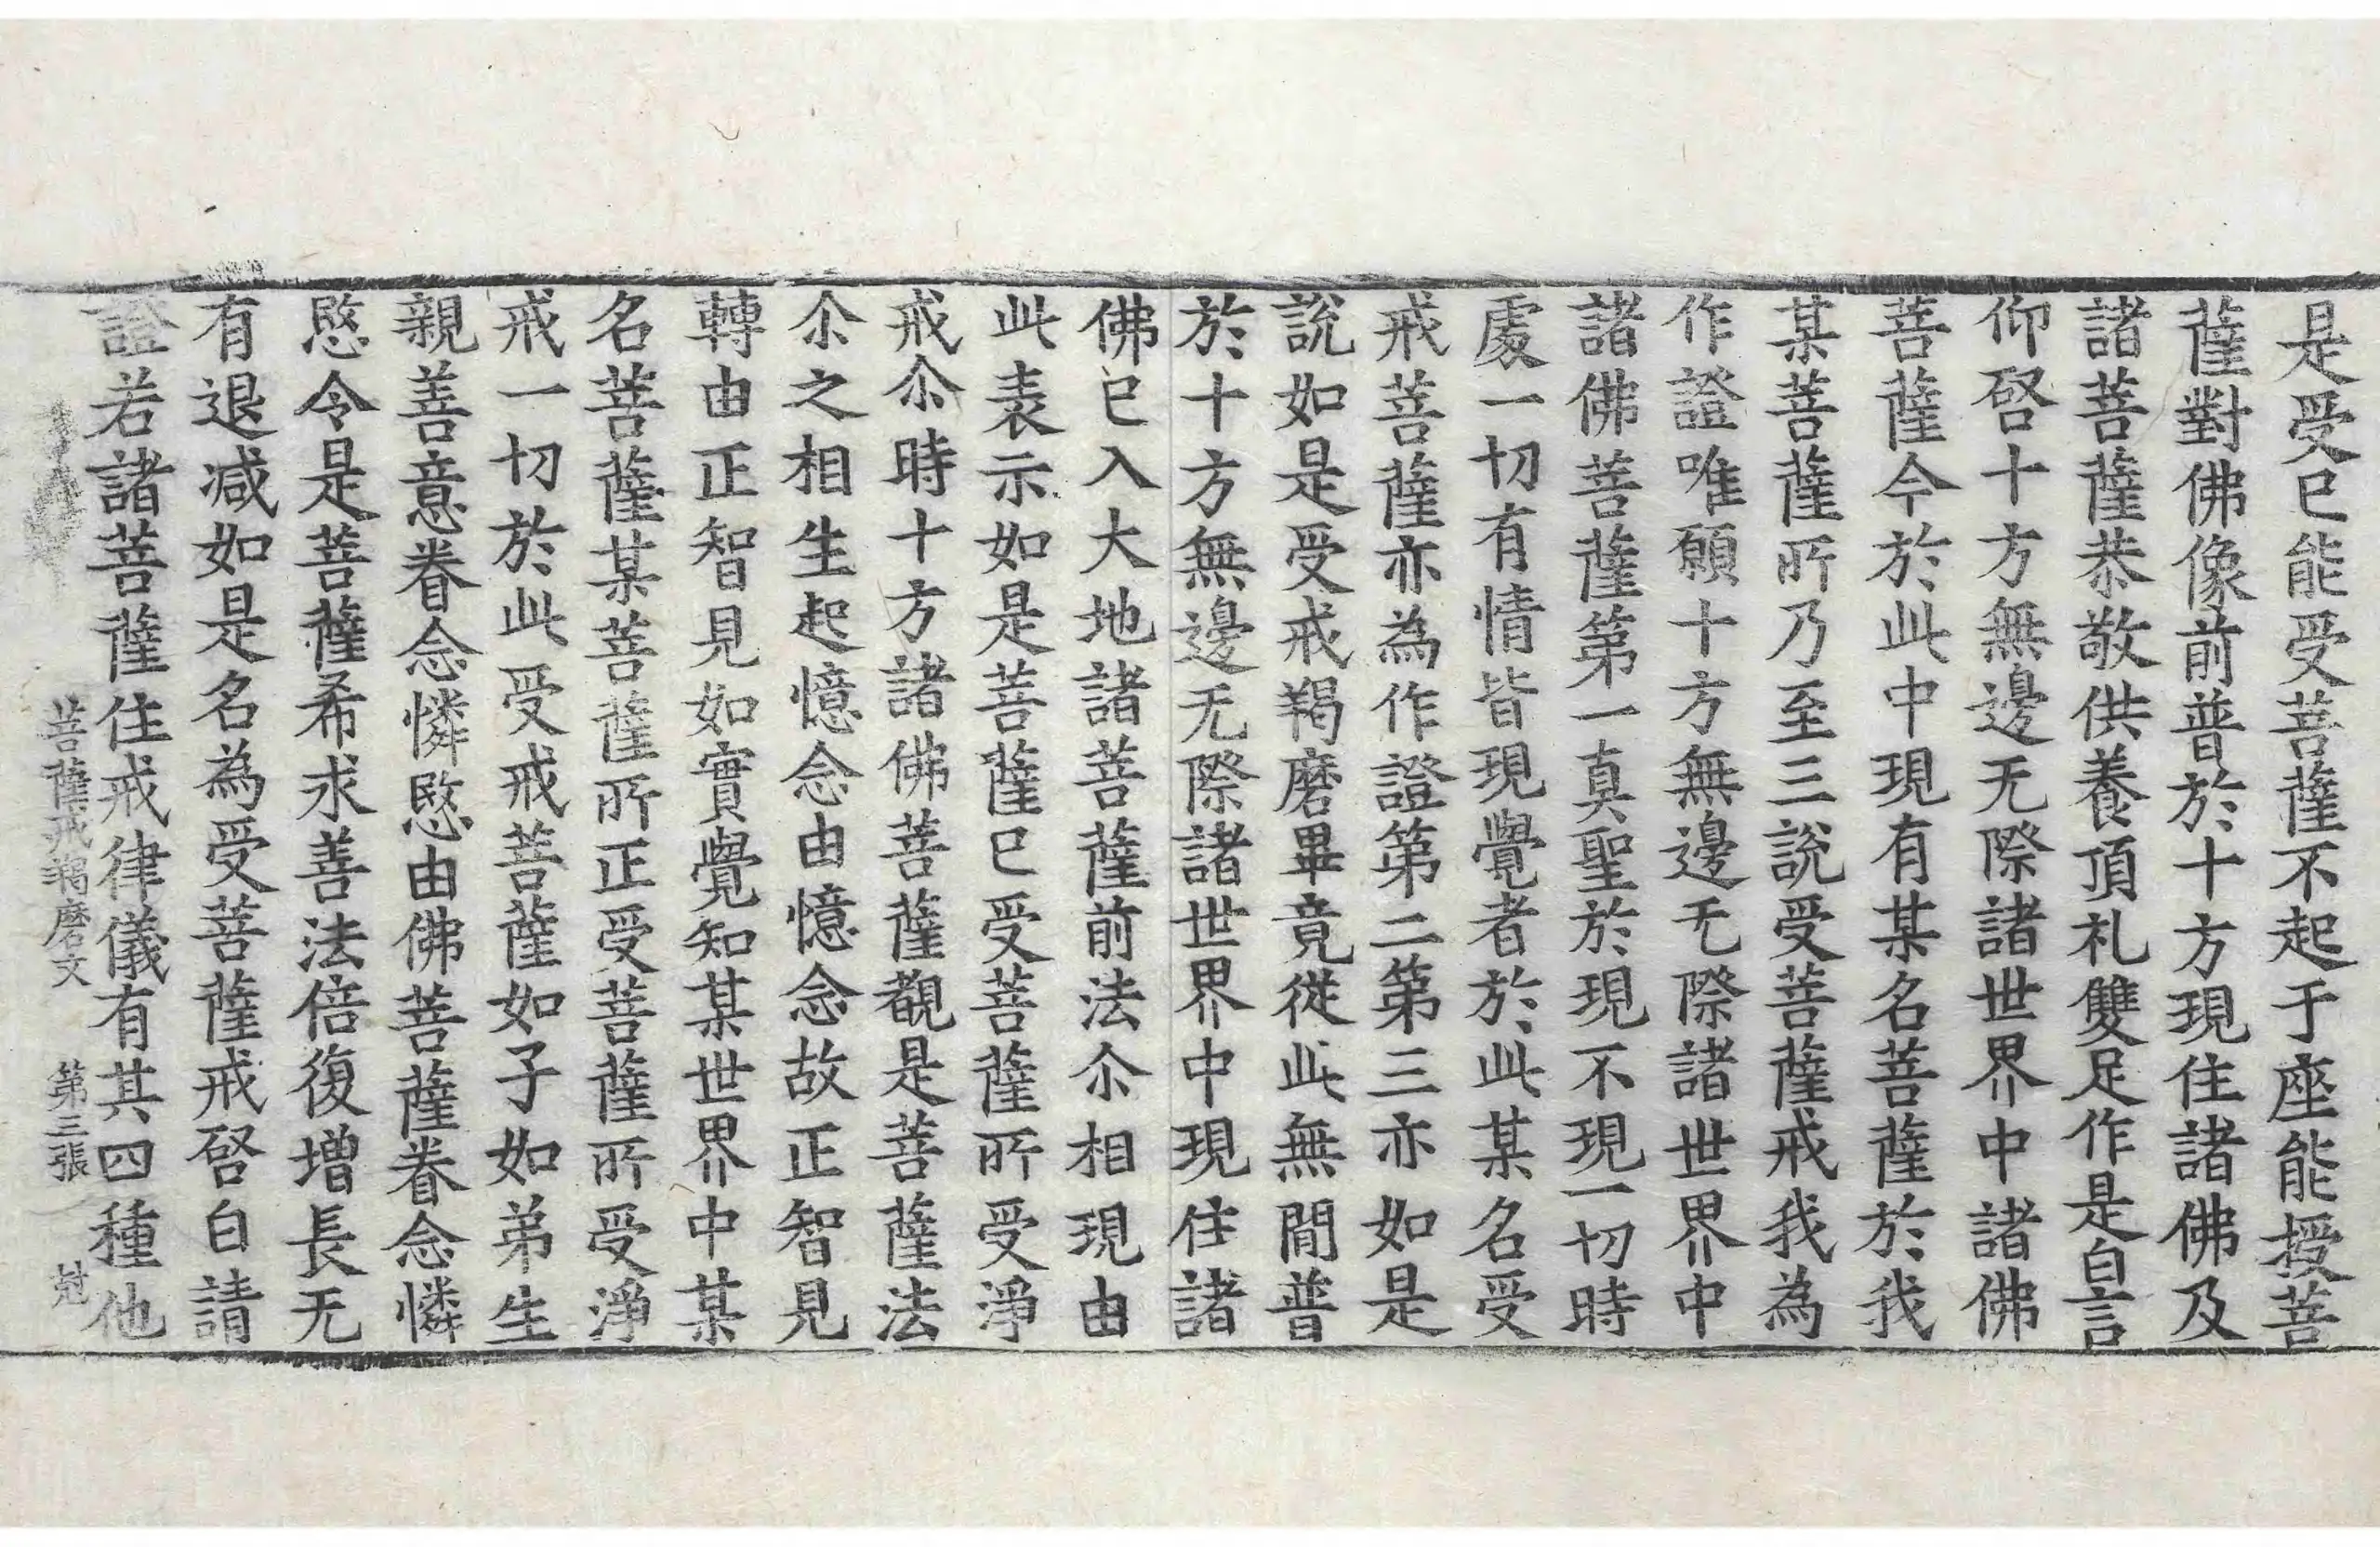 是受已能受菩薩不起于座能授菩
薩對佛像前普於十方現住諸佛及
諸菩薩恭敬供養頂礼雙足作是白言
仰啓十方無邊无際諸世界中諸佛
菩薩今於此中現有某名菩薩於我
某菩薩所乃至三說受菩薩戒我為
作證唯願十方無邊无際諸世界中
諸佛菩薩第一真聖於現不現一切時
處一切有情皆現覺者於此某名受
戒菩薩亦為作證第二第三亦如是
說如是受戒羯磨畢竟從此無間普
於十方無邊无際諸世界中現住諸
佛已入大地諸菩薩前法尒相現由
此表示如是菩薩已受菩薩所受淨
戒尒時十方諸佛菩薩觀是菩薩法
尒之相生起憶念由憶念故正智見
轉由正智見如實覺知某世界中某
名菩薩某菩薩所正受菩薩所受淨
戒一切於此受戒菩薩如子如弟生
親善意眷念憐愍由佛菩薩眷念憐
愍令是菩薩希求善法倍復增長无
有退减如是名為受菩薩戒啓白請
證若諸菩薩住戒律儀有其四種他
菩薩戒羯磨文 第三張